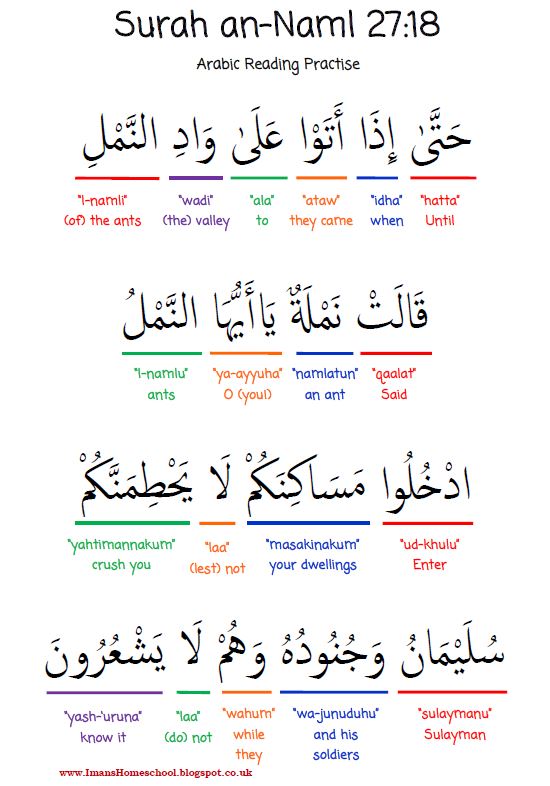 Surah an-Naml 27:18
Arabic Reading Practise
حَتَّىٰ إِذَا أَتَوْا عَلَىٰ وَادِ النَّمْلِ
"hatta" "idha" "ataw" "ala" "wadi" "l-namli"
Until when they came to (the) valley (of) the ants
قَالَتْ نَمْلَةٌ يَاأَيُّهَا النَّمْلُ
"qaalat" "namlatun" "ya-ayyuha" "l-namlu"
Said an ant O (you!) ants
ادْخُلُوا مَسَاكِنَكُمْ لَا يَحْطِمَنَّكُمْ
"ud-khulu" "masakinakum" "laa" "yahtimannakum"
Enter your dwellings (lest) not crush you
سُلَيْمَانُ وَجُنُودُهُ وَهُمْ لَا يَشْعُرُونَ
"sulaymanu" "wa-junuduhu" "wahum" "laa" "yash-'uruna"
Sulayman and his soldiers while they (do) not know it
www.ImansHomeschool.blogspot.co.uk